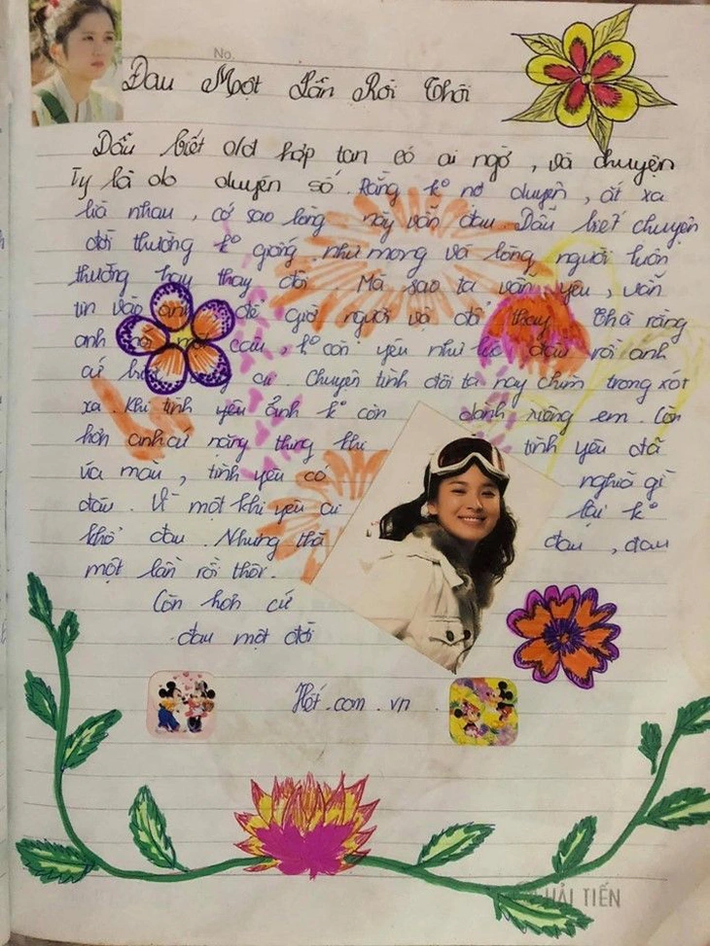 No.
Đau Một Lần Rồi Thôi
Dẫu biết old hợp tan có ai ngờ, và chuyện
Ty là do duyên số. Rằng kº nợ duyên, ắt xa
lìa nhau, cớ sao lòng này vẫn đau. Dẫu biết chuyện
đời thường kº giống như mong và lòng người luôn
thường hay thay đổi. Mà sao ta vẫn yêu, vẫn
tin vào anh để giờ người vô đổi thay. Thà rằng
anh nói một câu, kº còn yêu như lúc đầu rồi anh
cứ cứ. Chuyện tình đôi ta nay chìm trong xót
xa. Khi tình yêu ảnh kº còn dành riêng em. Còn
hơn anh cứ nặng thing khi tình yêu đã
úa màu, tình yêu có nghĩa gì
đâu. Vì một khi yêu ai lại kº
khổ đau. Nhưng thà đau, đau
một lần rồi thôi.
Còn hơn cứ
đau một đời
Hết.com.vn.
HẢI TIẾN